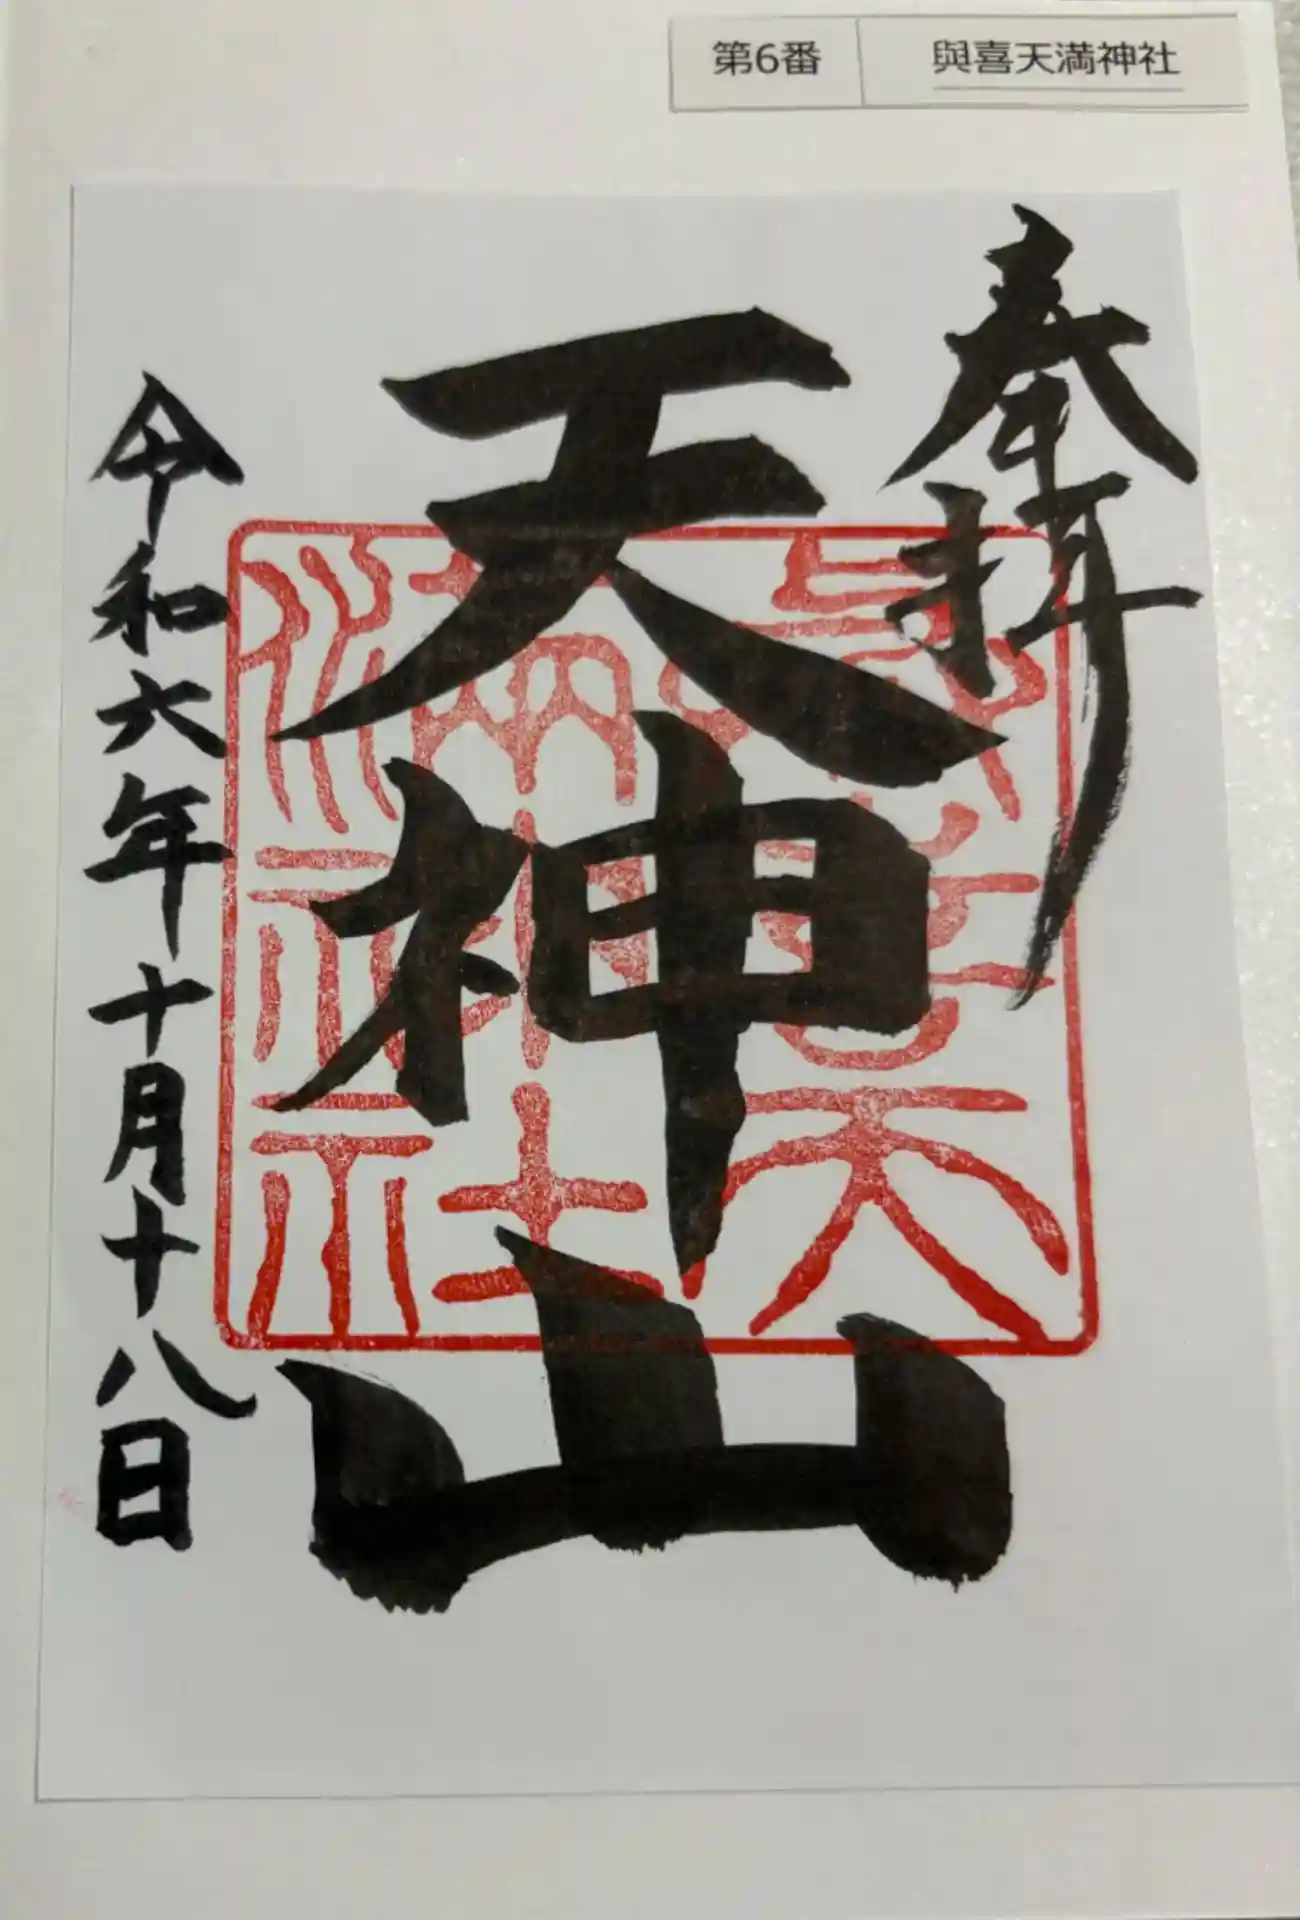 第6番 與喜天満神社
奉拝
天神山
與喜天満神社
令和六年十月十八日